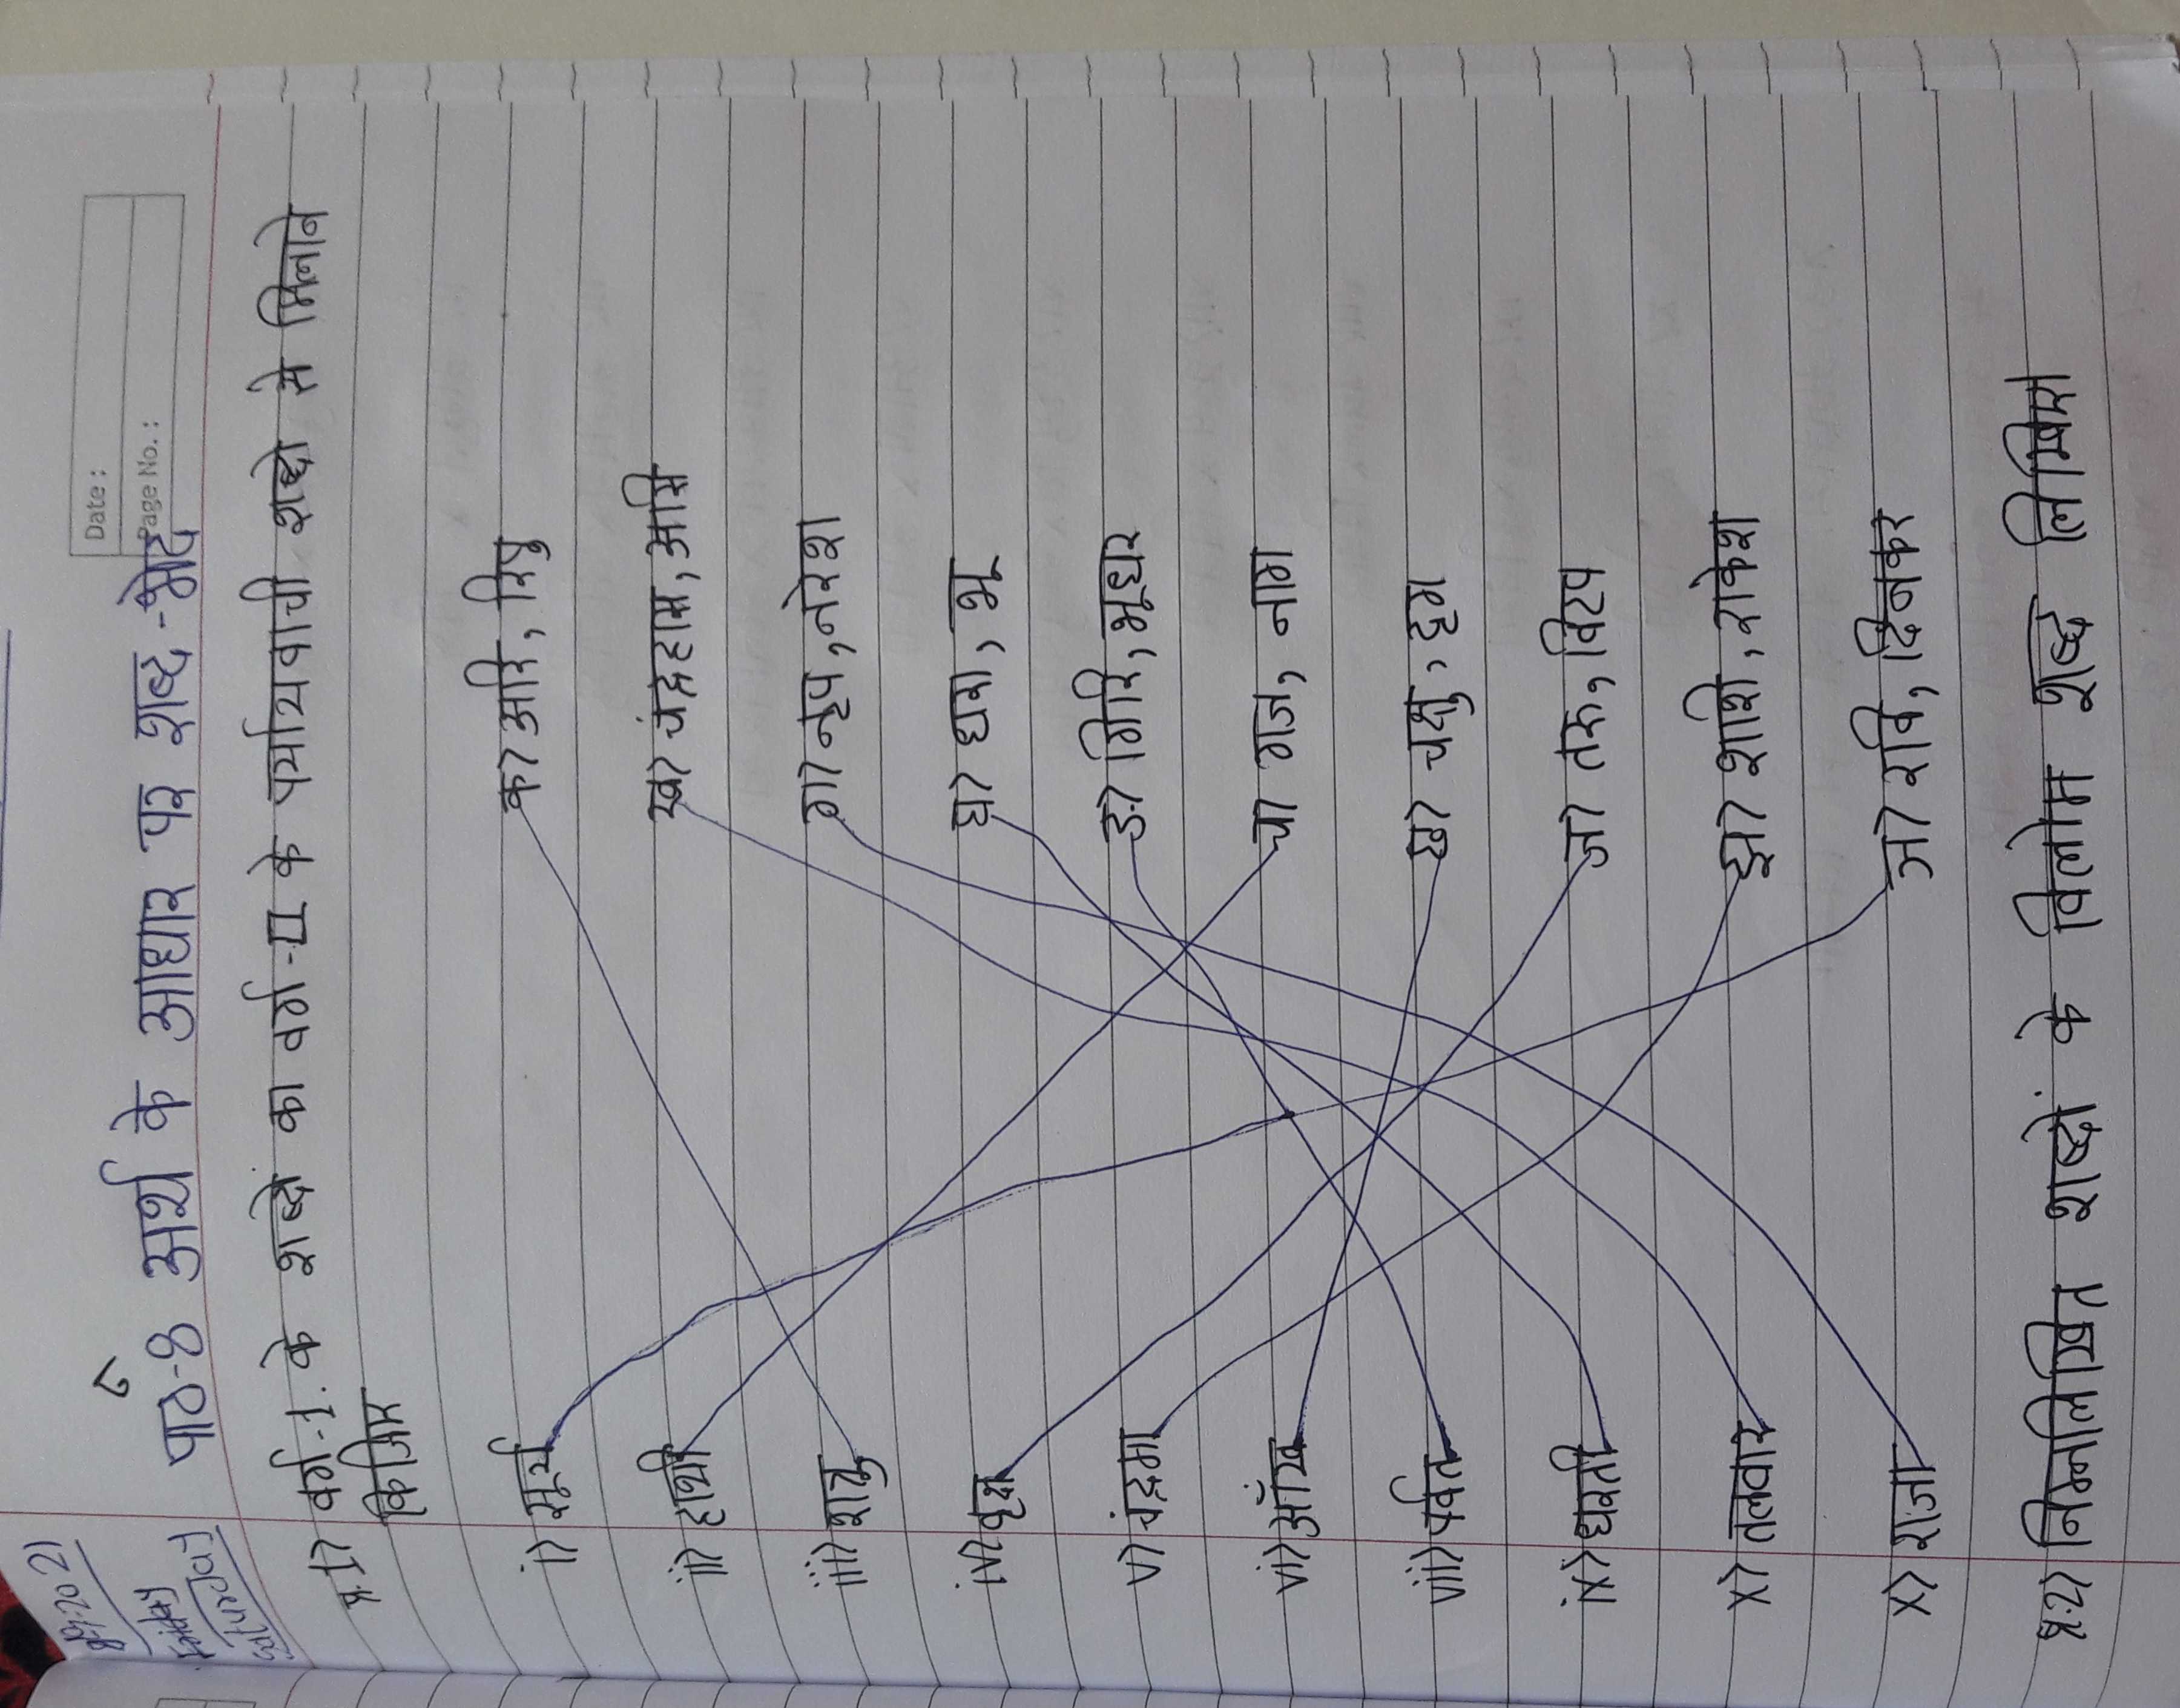 Date :
Page No. :
8.9.2021
Friday
Saturday
पाठ-8 अर्थ के आधार पर शब्द -भेद
प्र.1> वर्ग -I. के शब्दो का वर्ग -II के पर्यायवाची शब्दो से मिलान
किजिए
i> सूर्य क> अरि, रिपु
ii> हाथी ख> चंद्रहास, असि
iii> शत्रु ग> नृप, नरेश
iv> वृक्ष घ> धरा, भू
v> चंद्रमा ङ> गिरि, भूधर
vi> आँख च> गज, नाग
vii> पर्वत छ> चक्षु, दृग
ix> धरती ज> तरू, विटप
x> तलवार झ> शशि, राकेश
x> राजा ञ> रवि, दिनकर
प्र.2> निम्नलिखित शब्दों के विलोम शब्द लिखिए।